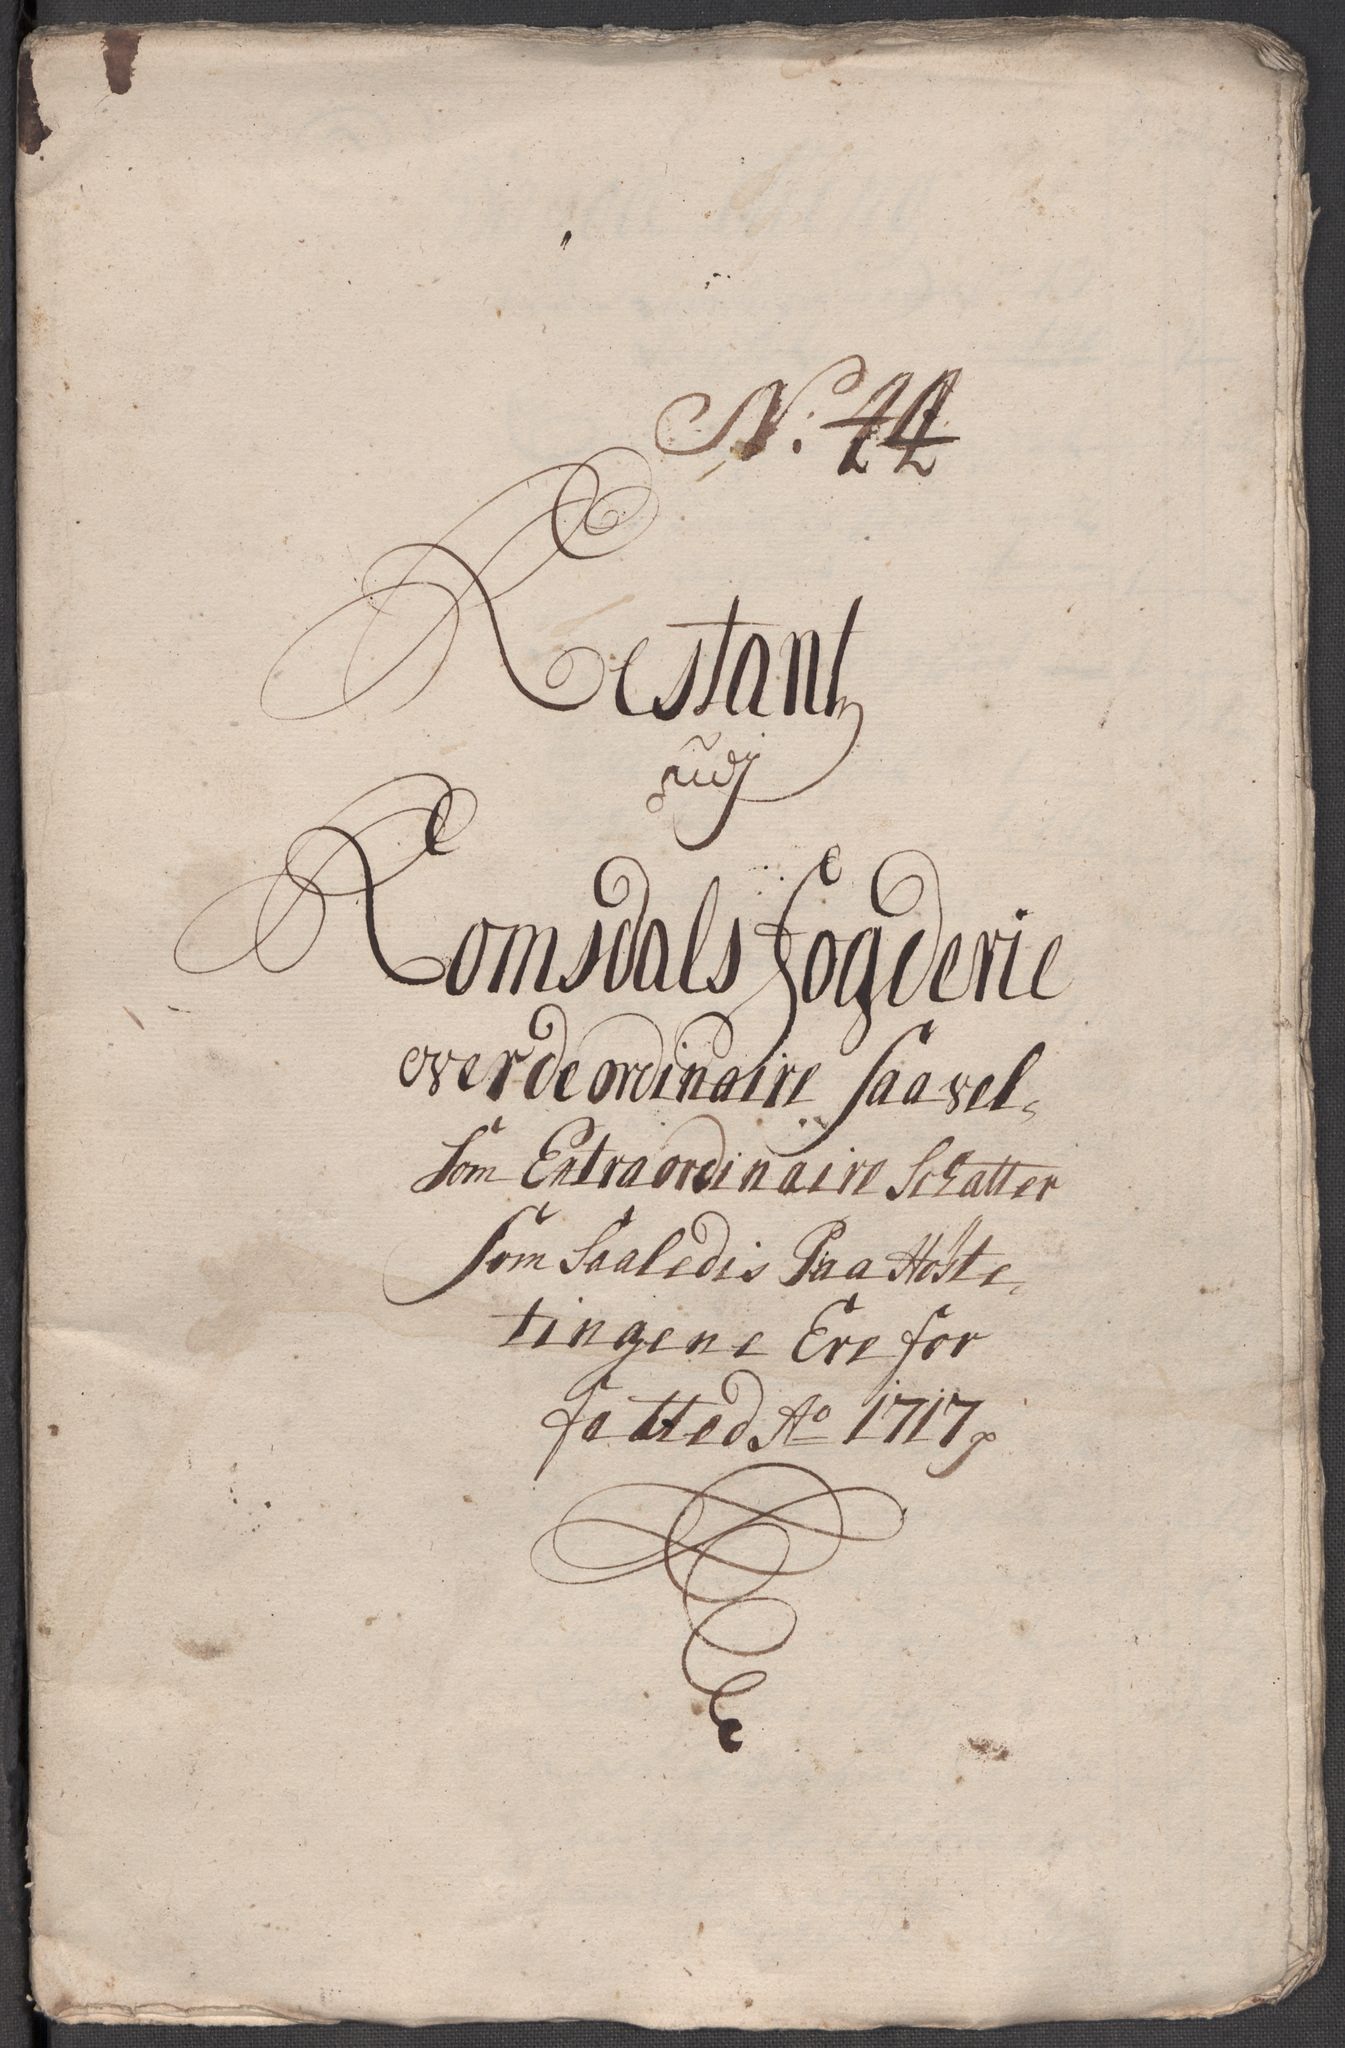 N. 44
Restant
udj
Romsdals Fogderie
over de ordinaire saavel-
som Extraordinaire Schatter
som Saaledis Paa Høste-
tingene Ere for
fatted Ao 1717